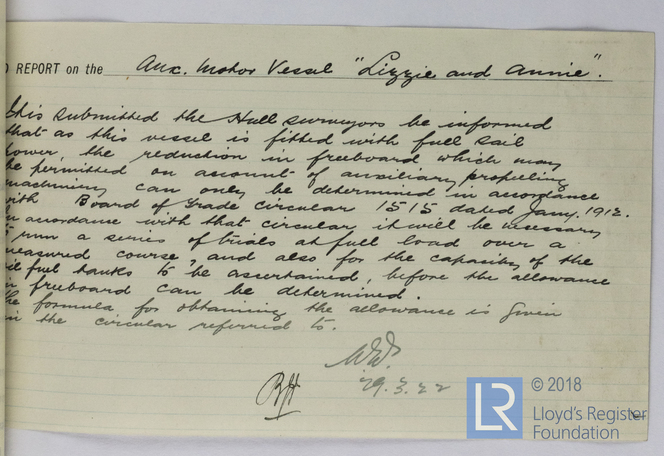 REPORT on the Aux. Motor Vessel "Lizzie and Annie".
this submitted the Hull surveyors be informed
that as this vessel is fitted with full sail
power, the reduction in freeboard which may
be permitted on account of auxiliary propelling
machinery can only be determined in accordance
with Board of Trade circular 1515 dated Jany. 1912.
In accordance with that circular, it will be necessary
to run a series of trials at full load over a
measured course, and also for the capacity of the
oil fuel tanks to be ascertained, before the allowance
in freeboard can be determined.
The formula for obtaining the allowance is given
in the circular referred to.
29.3.22
LR
© 2018
Lloyd's Register
Foundation